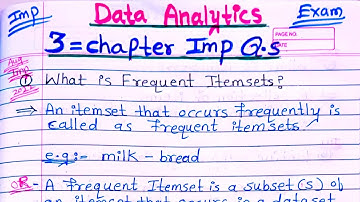 Imp
Data Analytics
Exam
3=chapter Imp Q.s
PAGE NO.
DATE
Imp
① What is Frequent Itemsets?
⇒ An itemset that occurs frequently is
called as frequent itemsets.
e.g:- milk - bread
OR - A Frequent Itemset is a subset(s) of
an itemset that occurs in a dataset